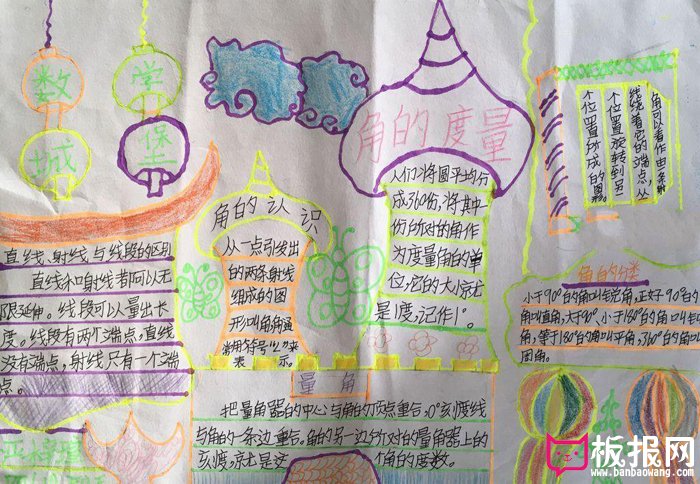 数学
城堡
直线、射线与线段的区别
直线和射线都可以无
限延伸。线段可以量出长
度。线段有两个端点,直线
没有端点,射线只有一个端
点。
角的认识
从一点引发出
的两条射线
组成的图
形叫角,角通
常用符号“∠”来
表示。
角的度量
人们将圆平均分
成360份,将其中
份所对的角作
为度量角的单
位,它的大小就
是1度,记作1°。
角可以看作由一条射
线绕着它的端点,从
一个位置旋转到另
个位置所成的图形
角的分类
小于90°的角叫锐角,正好90°的
角叫直角,大于90°、小于180°的角叫钝
角,等于180°的角叫平角,360°的角叫
周角。
量角
把量角器的中心与角的顶点重合,0°刻度线
与角的一条边重合。角的另一边所对的量角器上的
刻度,就是这个角的度数。
板报网
www.banbaowang.com